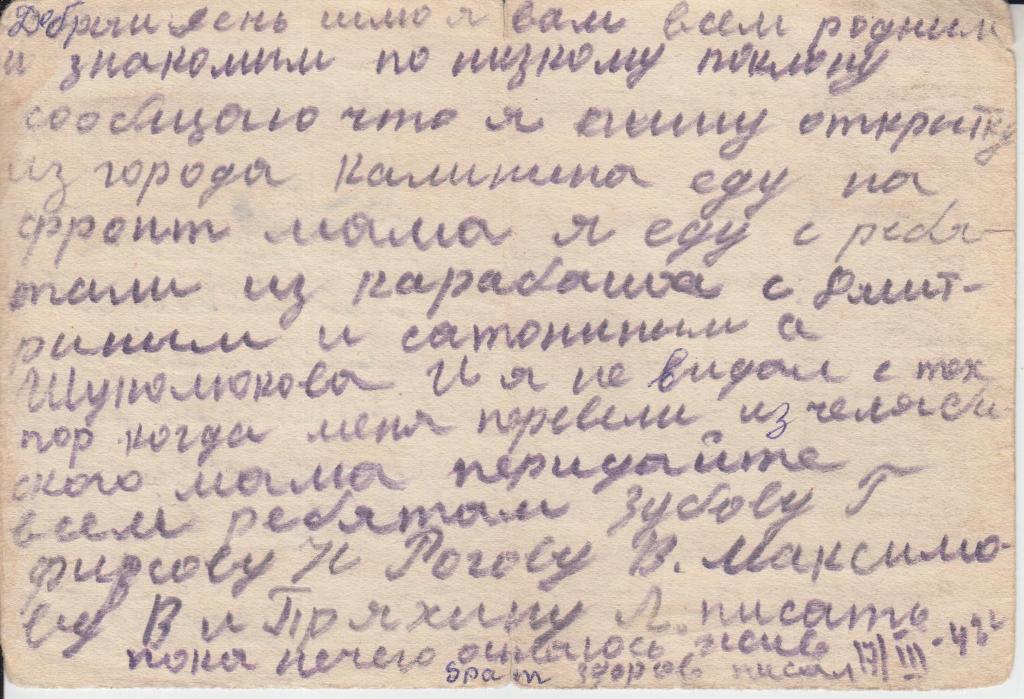 Добрый день шлю я вам всем родным
и знакомим по низкому поклону
сообщаю что я пишу открытку
из города Калинина еду на
фронт мама я еду с ребя-
тами из карабаша с Дмит-
риным и сатониным а
Шупомюкова И я не видал с тех
пор когда меня перевели из челяби
ского мама перидайте
всем ребятам Зубову Г
фирсову Н Рогову В. Максимо-
ву В и Пряхину Л. писать
пока нечего остаюсь жив
брат здоров писал 17/III-43г